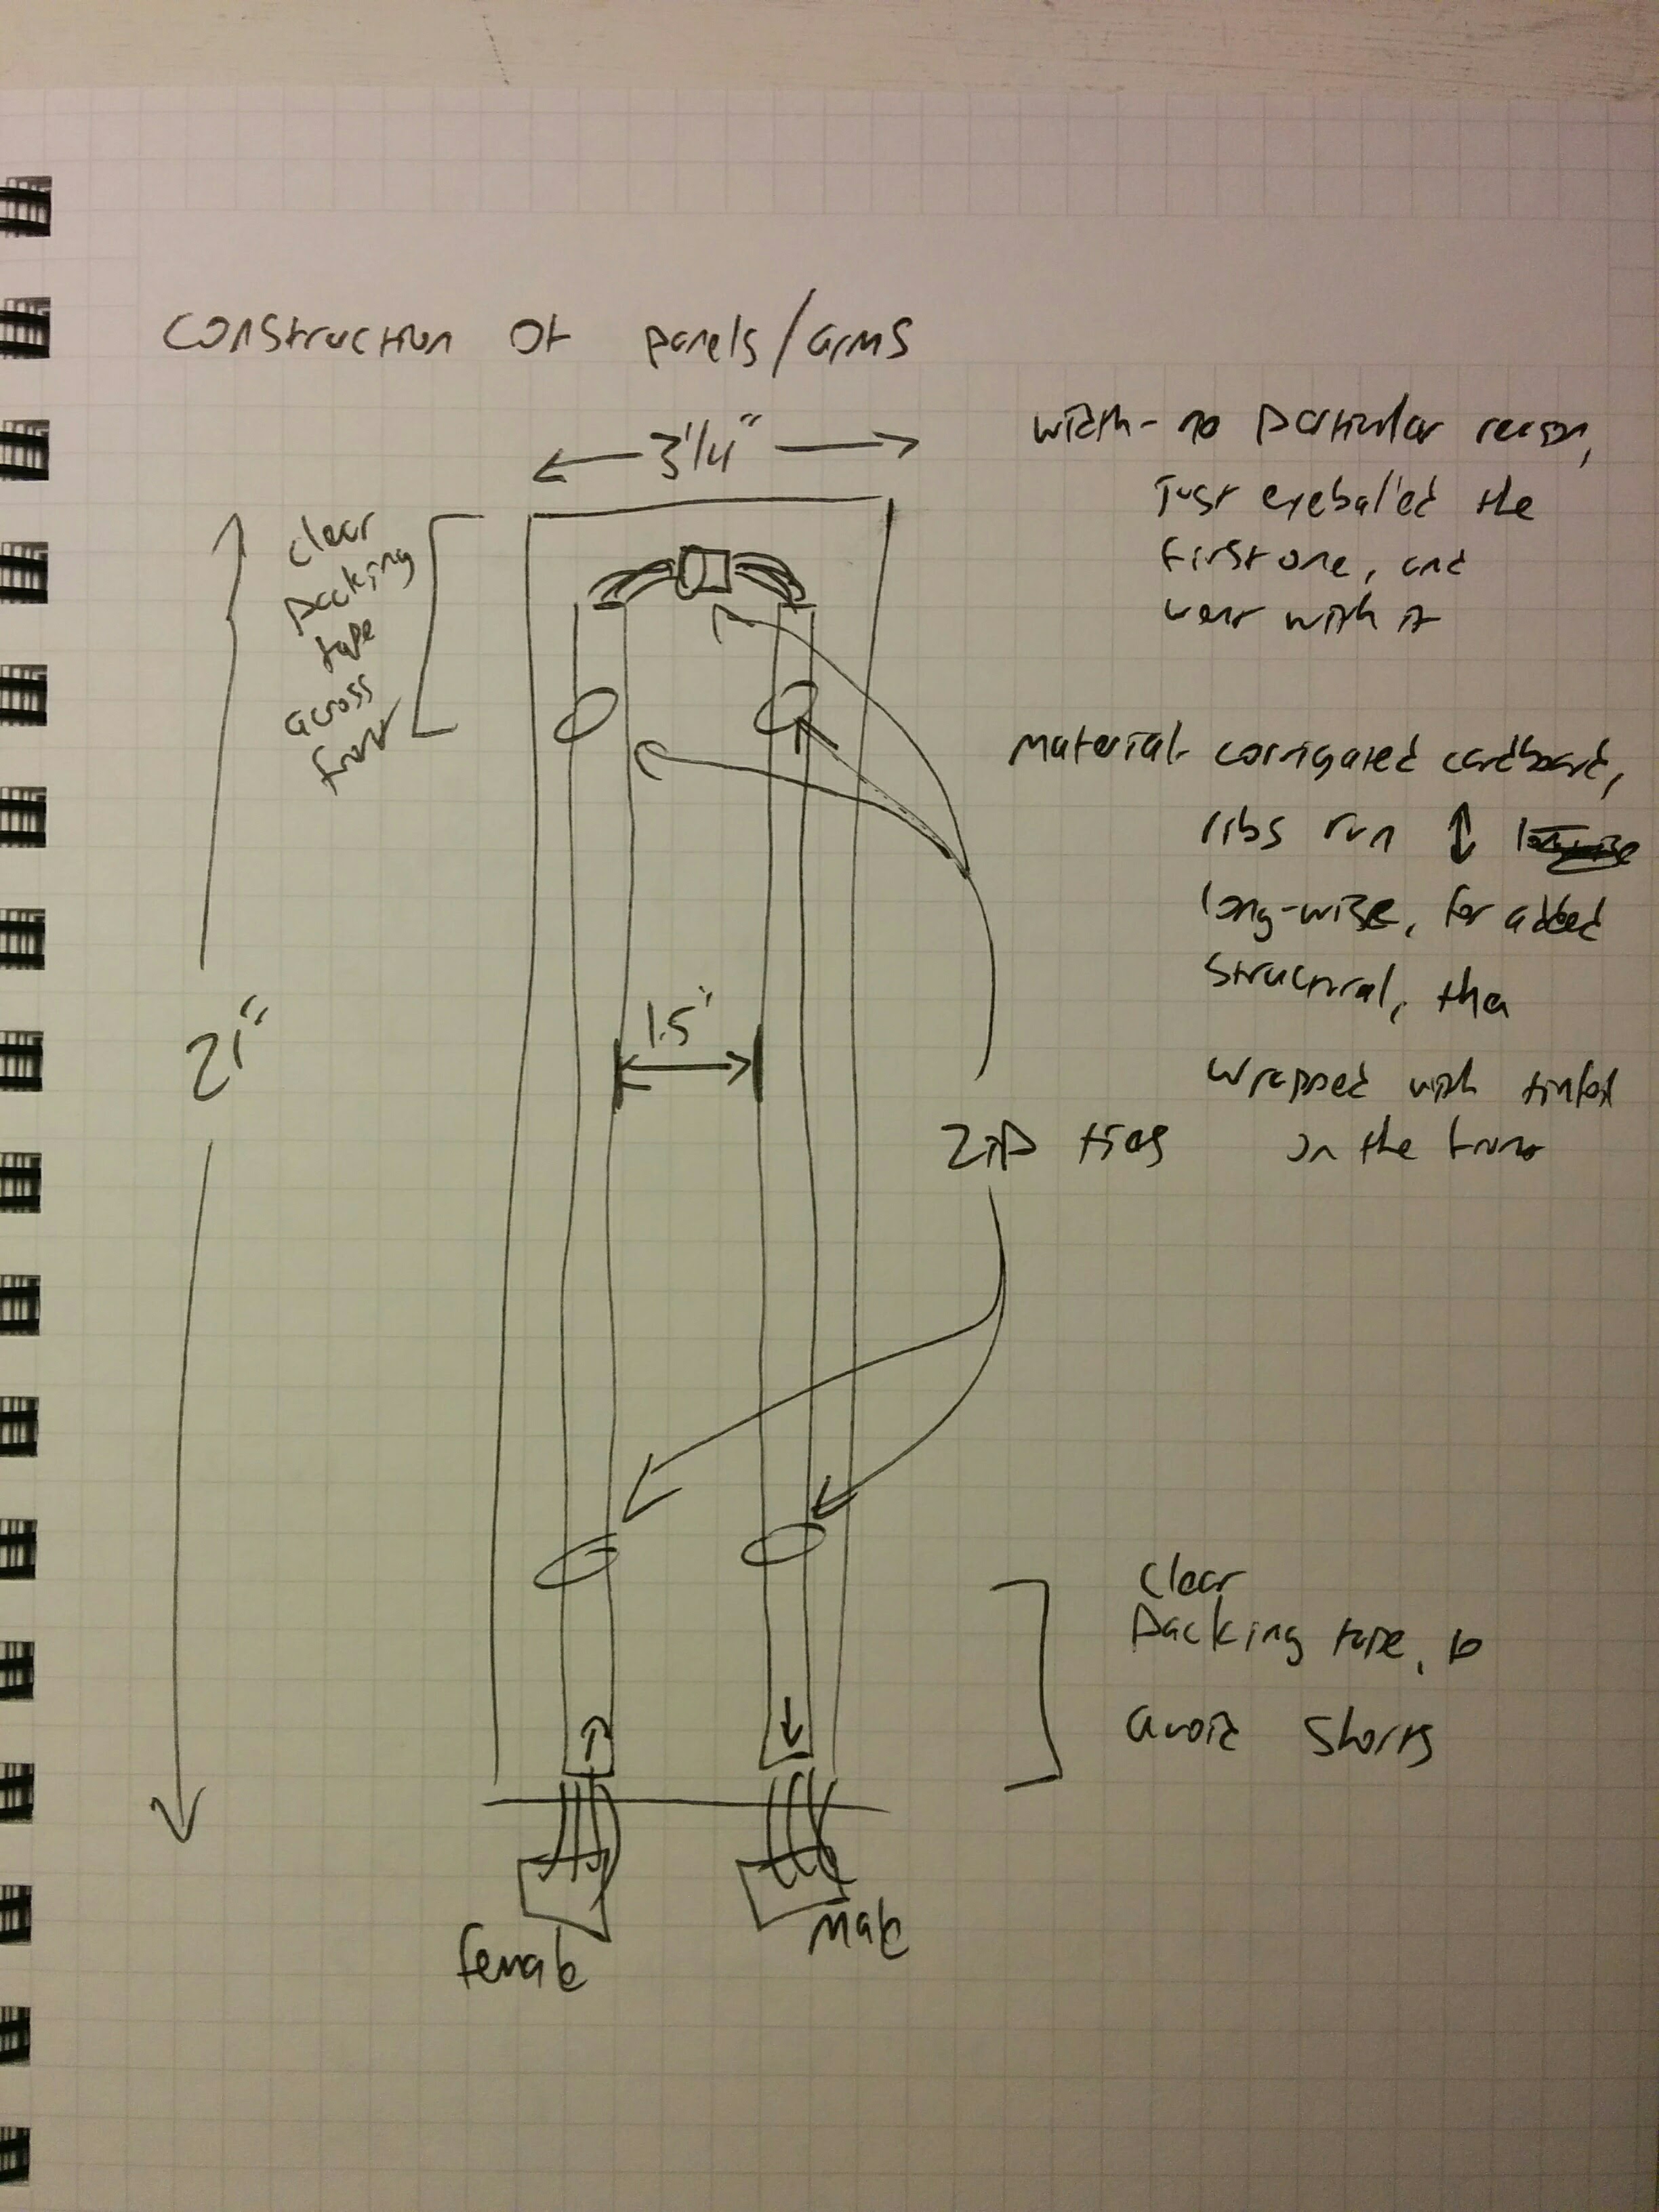 Construction of panels/arms
3 1/4"
width - no particular reason,
just eyeballed the
first one, and
went with it
clear
packing
tape
across
front
Material - corrigated cardboard,
ribs run ↕
long-wise, for added
structural, the
wrapped with tinfoil
on the front
21"
1.5"
zip ties
clear
packing tape, to
avoid shorts
female
male